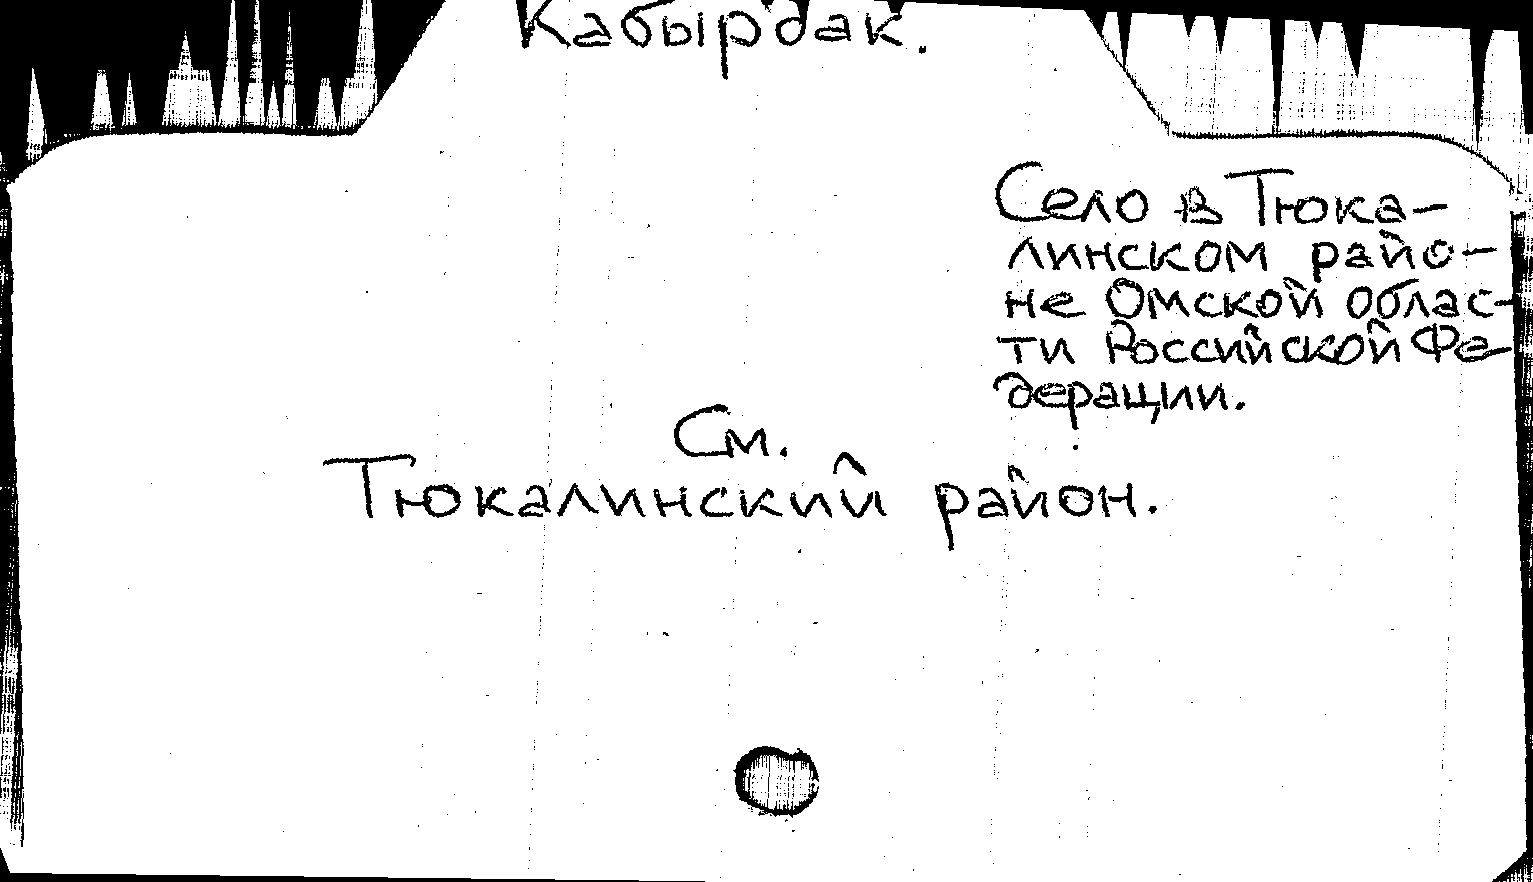 Кабырдак.
Село в Тюка-
линском райо-
не Омской облас-
ти Российской Фе-
дерации.
См.
Тюкалинский район.